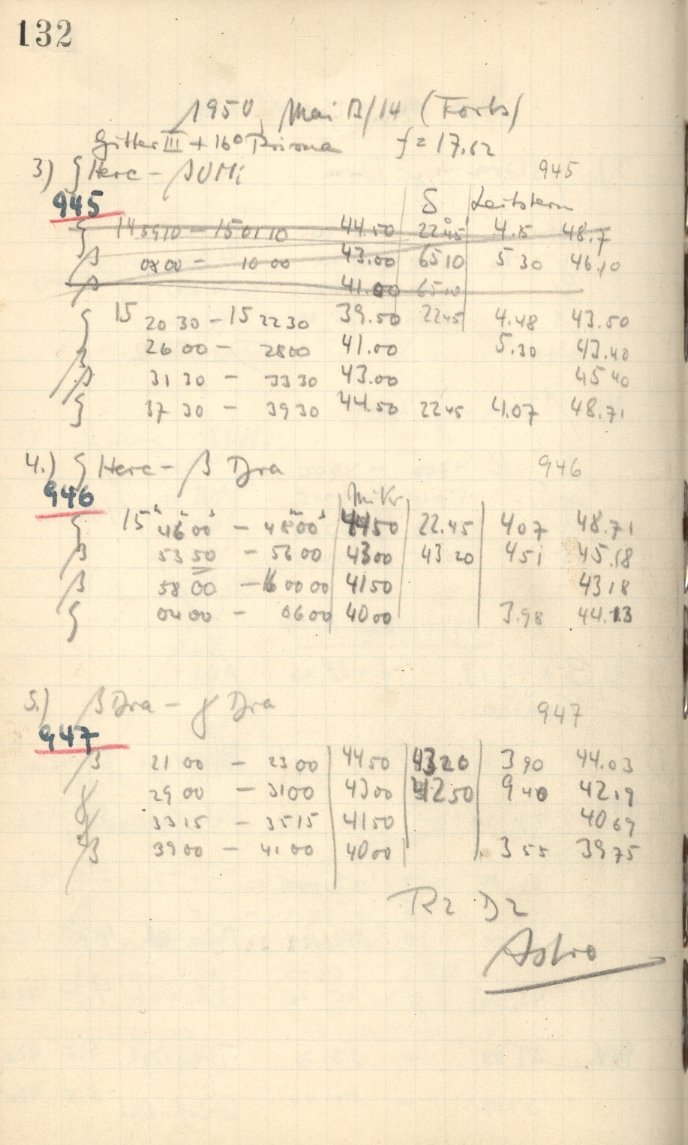 132
1950, Mai 13/14 (Forts)
Gitter III + 16° Prisma f = 17.62
3) ζ Herc - β UMi 945
945 δ Leitstern
ζ 14 59 10 - 15 01 10 44.50 22 45 4.15 48.7
β 08 00 - 10 00 43.00 65 10 5 30 46.10
β 41.00 65 10
ζ 15 20 30 - 15 22 30 39.50 22 45 4.48 43.50
β 26 00 - 28 00 41.00 5.30 43.40
β 31 30 - 33 30 43.00 45 40
ζ 37 30 - 39 30 44.50 22 45 4.07 48.71
4.) ζ Herc - β Dra 946
946 Mikr
ζ 15 46 00 - 48 00 44 50 22.45 4 07 48.71
β 53 50 - 56 00 43 00 43 20 4 51 45.18
β 58 00 - 16 00 00 41 50 43 18
ζ 04 00 - 06 00 40 00 3.98 44.13
5.) β Dra - γ Dra 947
947
β 21 00 - 23 00 44 50 43 20 3 90 44.03
γ 29 00 - 31 00 43 00 42 50 9 40 42.19
γ 33 15 - 35 15 41 50 40 69
β 39 00 - 41 00 40 00 3 55 39 75
R2 D2
Astro